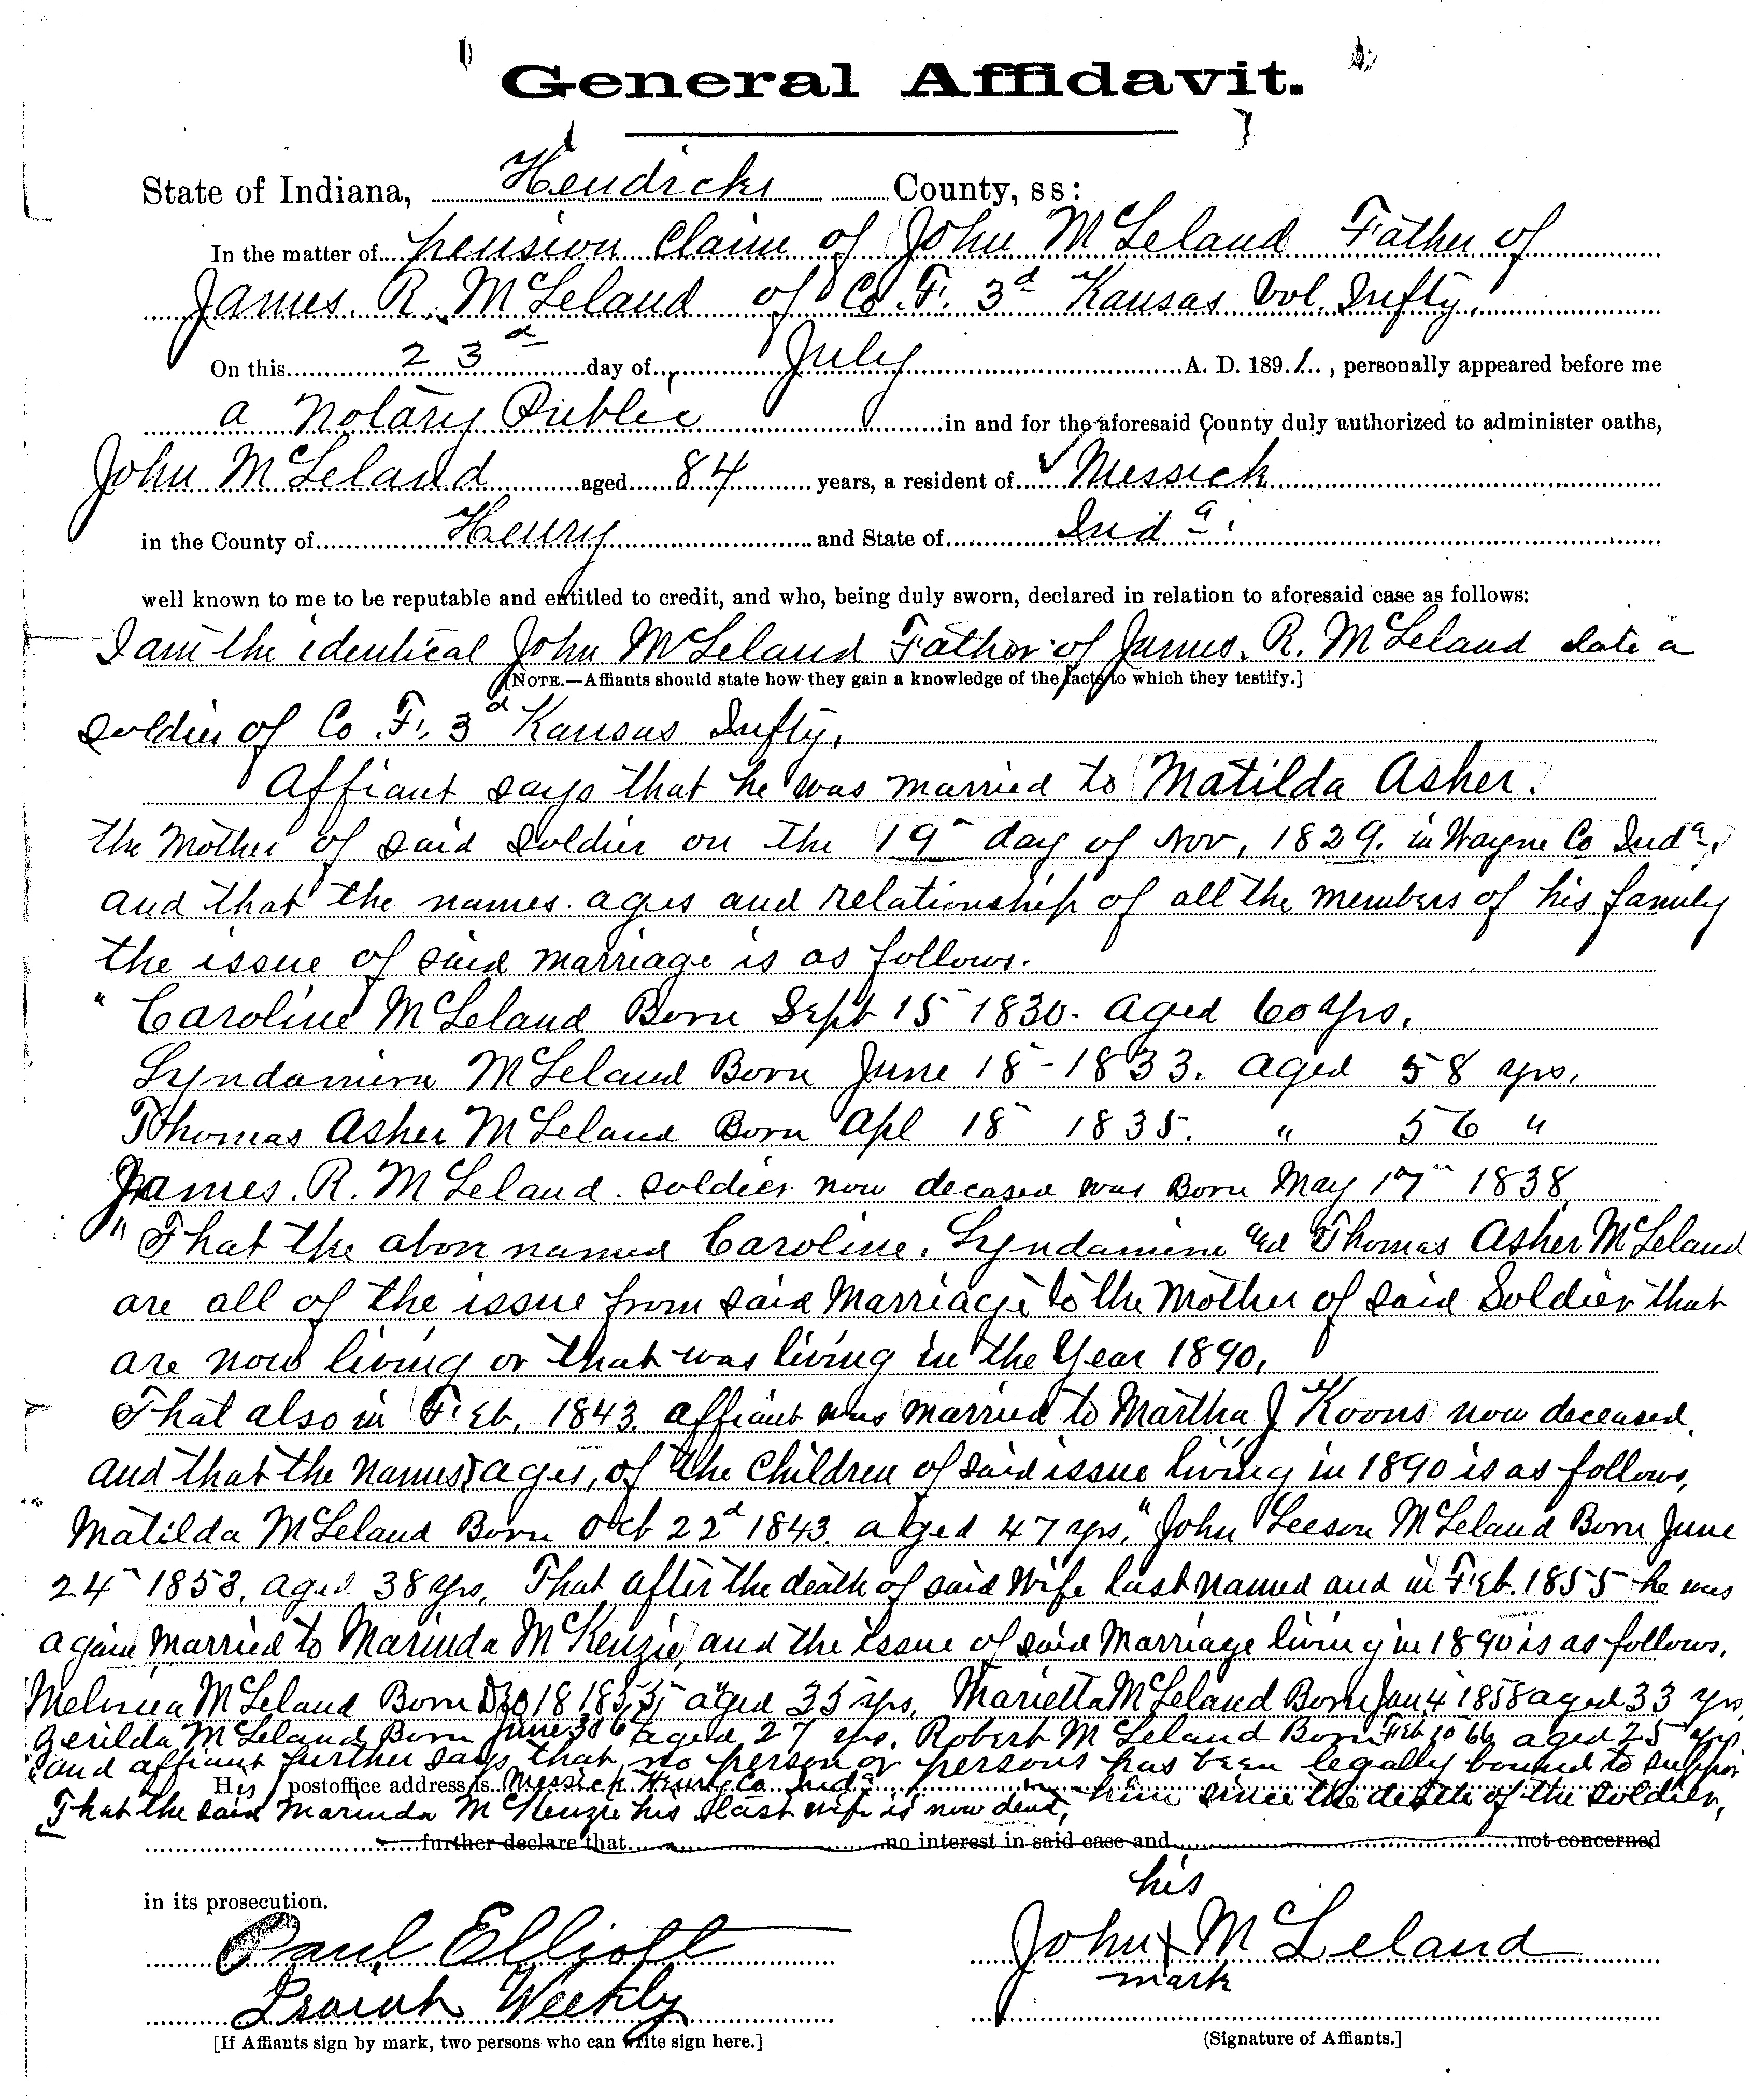 General Affidavit.
State of Indiana, Hendricks County, ss:
In the matter of pension claim of John McLeland Father of
James. R. McLeland of Co. F. 3d Kansas Vol. Infty.
On this 23d day of July A. D. 1891, personally appeared before me
a Notary Public in and for the aforesaid County duly authorized to administer oaths,
John McLeland aged 84 years, a resident of Messick
in the County of Henry and State of Inda.
well known to me to be reputable and entitled to credit, and who, being duly sworn, declared in relation to aforesaid case as follows:
I am the identical John McLeland Father of James. R. McLeland late a
[NOTE.—Affiants should state how they gain a knowledge of the facts to which they testify.]
soldier of Co. F. 3d Kansas Infty,
Affiant says that he was married to Matilda Asher.
the Mother of said Soldier on the 19" day of Nov, 1829. in Wayne Co Inda,
and that the names. ages and relationship of all the members of his family
the issue of said marriage is as follows.
" Caroline McLeland Born Sept 15" 1830. aged 60 yrs.
Lyndamira McLeland Born June 18 - 1833. aged 58 yrs.
Thomas Asher McLeland Born Apl 18" 1835. " 56 "
James. R. McLeland. soldier now decased was Born May 17" 1838
" That the above named Caroline, Lyndamine and Thomas Asher McLeland
are all of the issue from said Marriage to the Mother of said Soldier that
are now living or that was living in the Year 1890,
That also in Feb, 1843. affiant was married to Martha J Koons now deceased.
and that the names, ages, of the Children of said issue living in 1890 is as follows,
Matilda McLeland Born Oct 22d 1843. aged 47 yrs." John Leeson McLeland Born June
24" 1853. aged 38 yrs. That after the death of said Wife last named and in Feb. 1855 he was
again married to Marinda McKenzie, and the issue of said Marriage living in 1890 is as follows.
McLeland Born Dec 18 1855 aged 35 yrs, Marietta McLeland Born Jan 4 1858 aged 33 yrs,
Zerilda McLeland Born June 30 6 aged 27 yrs. Robert McLeland Born Feb 10 66 aged 25 yrs
and affiant further says that no person or persons has been legally bound to suppor
His postoffice address is Messick Henry Co Inda him since the death of the Soldier,
That the said Marinda McKenzie his last wife is now dead,
further declare that no interest in said case and not concerned
in its prosecution.
his
Paul Elliott John X McLeland
mark
Isaiah Weekly
[If Affiants sign by mark, two persons who can write sign here.] (Signature of Affiants.]